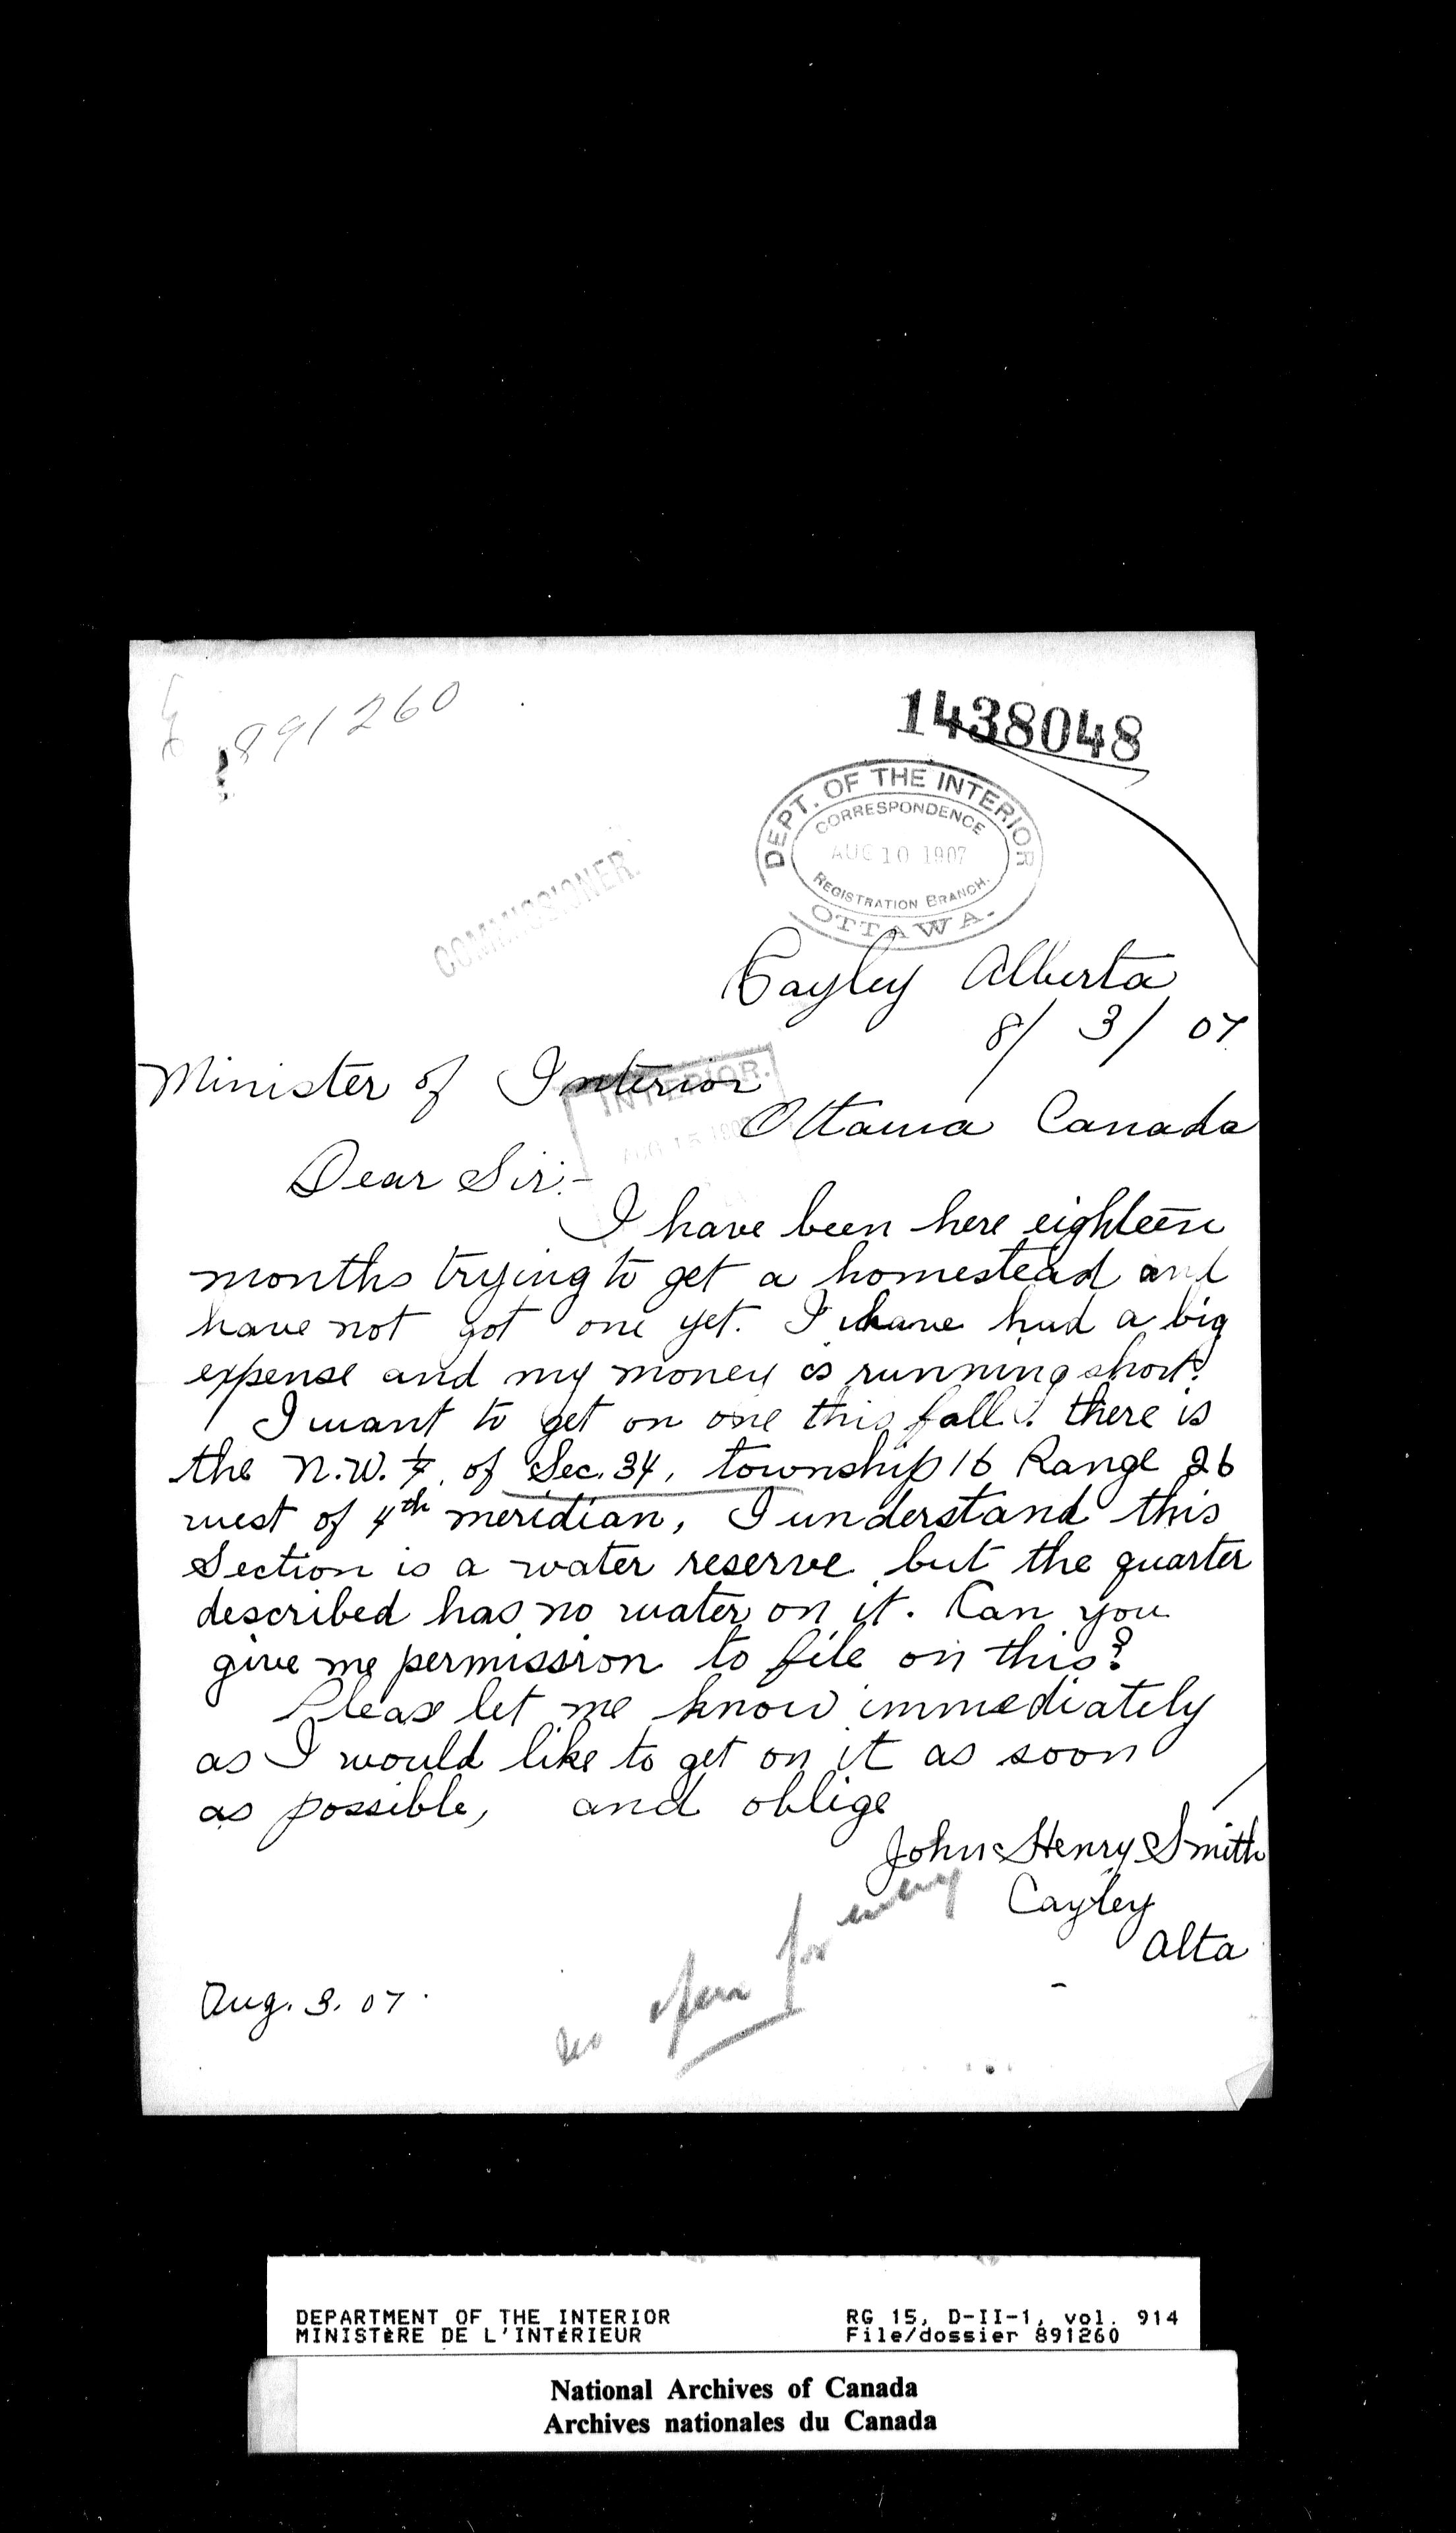 891260
1438048
DEPT. OF THE INTERIOR
CORRESPONDENCE
AUG 10 1907
REGISTRATION BRANCH.
OTTAWA.
COMMISSIONER.
Cayley Alberta
8/ 3/ 07
Minister of Interior
INTERIOR.
AUG 15 1907
Ottawa Canada
Dear Sir:-
I have been here eighteen
months trying to get a homestead and
have not got one yet. I have had a big
expense and my money is running short.
I want to get on one this fall. there is
the N.W. 1/4 of Sec. 34, township 16 Range 26
west of 4th meridian, I understand this
Section is a water reserve but the quarter
described has no water on it. Can you
give me permission to file on this?
Please let me know immediately
as I would like to get on it as soon
as possible, and oblige
John Henry Smith
Cayley
Alta
open for entry
Aug. 3. 07.
DEPARTMENT OF THE INTERIOR RG 15, D-II-1, vol. 914
MINISTÈRE DE L'INTÉRIEUR File/dossier 891260
National Archives of Canada
Archives nationales du Canada